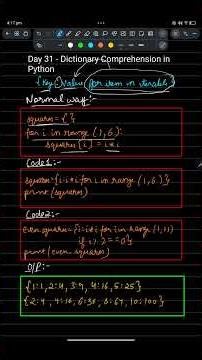 4:17 pm
Day 31 - Dictionary Comprehension in
Python
{key:Value for item in iterable}
Normal way:-
square = {}
for i in range (1,6):
square[i] = i*i
Code1:-
square={i:i*i for i in range(1,6)}
print(square)
Code2:-
even squares={i:i*i for i in range(1,11)
if i%2==0}
print(even squares)
O/P:-
{1:1, 2:4, 3:9, 4:16, 5:25}
{2:4, 4:16, 6:36, 8:64, 10:100}